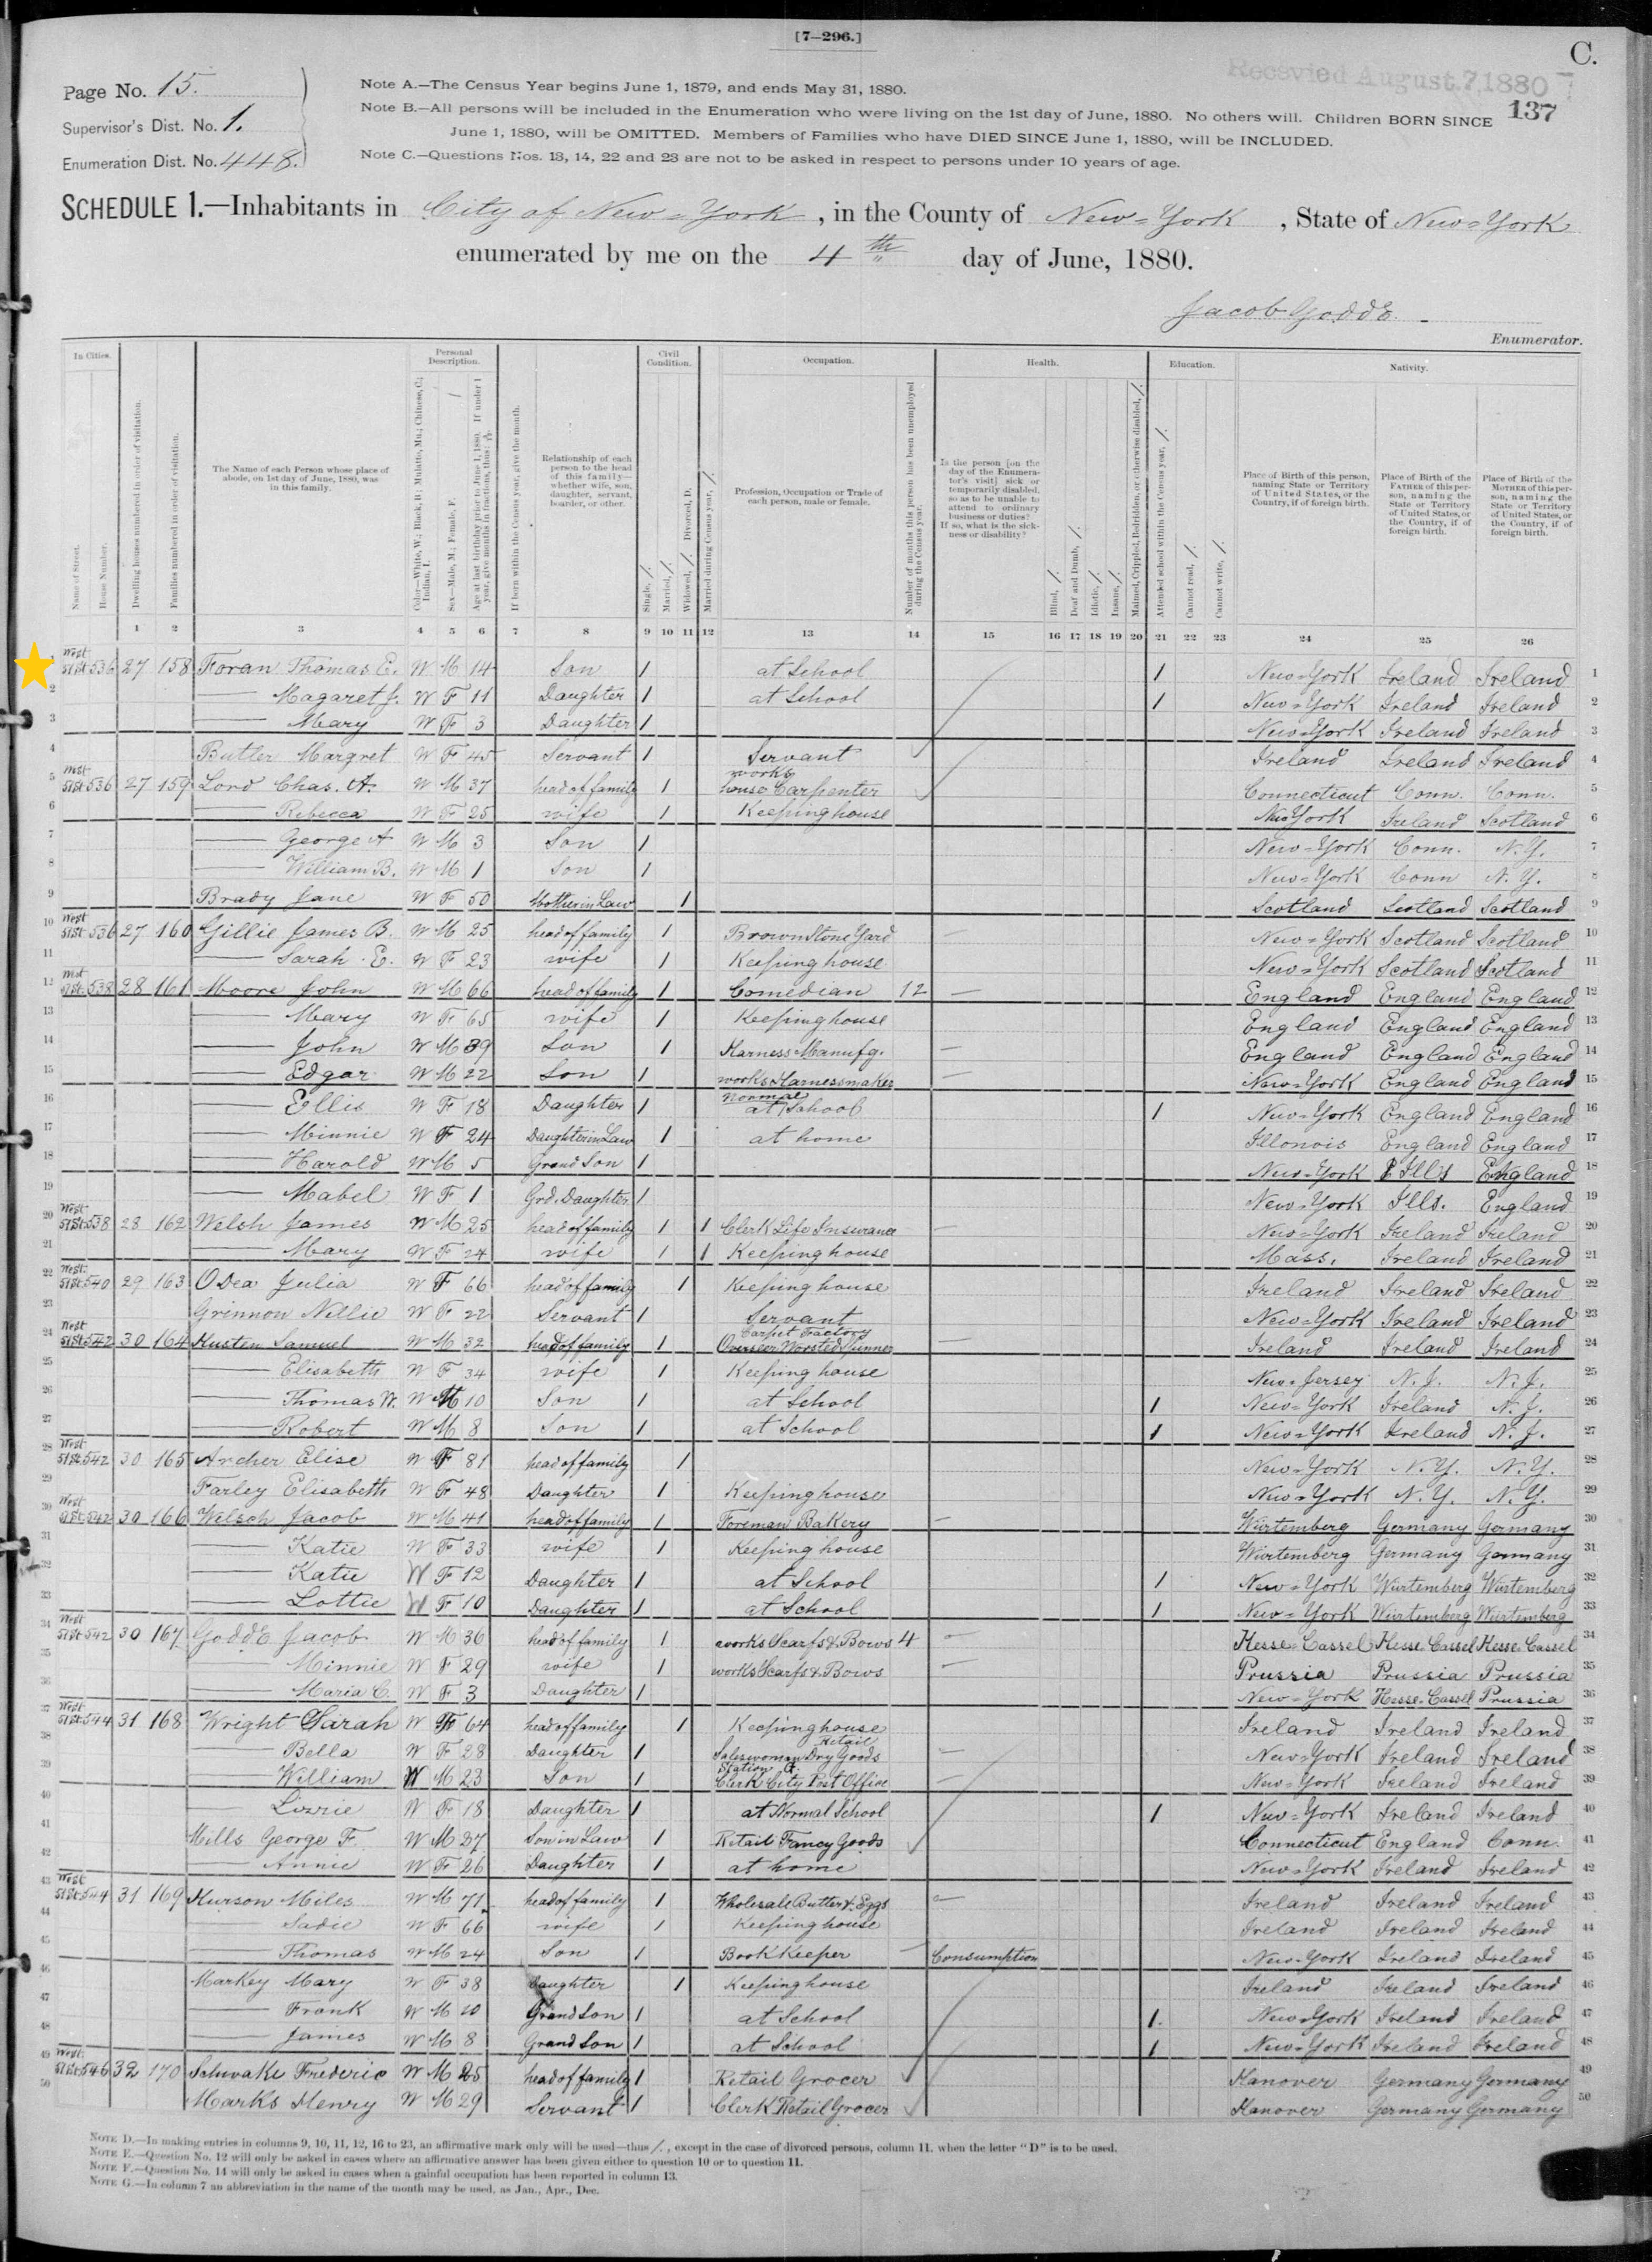 [7–296.]
C.
Received August 7 1880
137
Page No. 15.
Supervisor's Dist. No. 1.
Enumeration Dist. No. 448.
Note A.—The Census Year begins June 1, 1879, and ends May 31, 1880.
Note B.—All persons will be included in the Enumeration who were living on the 1st day of June, 1880. No others will. Children BORN SINCE
June 1, 1880, will be OMITTED. Members of Families who have DIED SINCE June 1, 1880, will be INCLUDED.
Note C.—Questions Nos. 13, 14, 22 and 23 are not to be asked in respect to persons under 10 years of age.
SCHEDULE 1.—Inhabitants in City of New=York, in the County of New=York, State of New=York
enumerated by me on the 4th day of June, 1880.
Jacob GoddE
Enumerator.
In Cities. Personal Description. Civil Condition. Occupation. Health. Education. Nativity.
Name of Street.
House Number.
Dwelling houses numbered in order of visitation.
Families numbered in order of visitation.
The Name of each Person whose place of abode, on 1st day of June, 1880, was in this family.
Color—White, W.; Black, B; Mulatto, Mu.; Chinese, C.; Indian, I.
Sex—Male, M.; Female, F.
Age at last birthday prior to June 1, 1880. If under 1 year, give months in fractions, thus:
If born within the Census year, give the month.
Relationship of each person to the head of this family—whether wife, son, daughter, servant, boarder, or other.
Single, /.
Married, /.
Widowed, /. Divorced, D.
Married during Census year, /.
Profession, Occupation or Trade of each person, male or female.
Number of months this person has been unemployed during the Census year.
Is the person [on the day of the Enumerator's visit] sick or temporarily disabled, so as to be unable to attend to ordinary business or duties? If so, what is the sickness or disability?
Blind, /.
Deaf and Dumb, /.
Idiotic, /.
Insane, /.
Maimed, Crippled, Bedridden, or otherwise disabled, /.
Attended school within the Census year, /.
Cannot read, /.
Cannot write, /.
Place of Birth of this person, naming State or Territory of United States, or the Country, if of foreign birth.
Place of Birth of the FATHER of this person, naming the State or Territory of United States, or the Country, if of foreign birth.
Place of Birth of the MOTHER of this person, naming the State or Territory of United States, or the Country, if of foreign birth.
1 2 3 4 5 6 7 8 9 10 11 12 13 14 15 16 17 18 19 20 21 22 23 24 25 26
1 West 51 St 536 27 158 Foran Thomas E. W M 14 Son / at School / New=York Ireland Ireland 1
2 —— Magaret J. W F 11 Daughter / at School / New=York Ireland Ireland 2
3 —— Mary W F 3 Daughter / New=York Ireland Ireland 3
4 Butler Margret W F 45 Servant / Servant Ireland Ireland Ireland 4
5 West 51 St 536 27 159 Lord Chas. A. W M 37 head of family / works house Carpenter Connecticut Conn. Conn. 5
6 —— Rebecca W F 25 wife / Keeping house New York Ireland Scotland 6
7 —— George A W M 3 Son / New=York Conn. N.Y. 7
8 —— William B. W M 1 Son / New=York Conn N.Y. 8
9 Brady Jane W F 50 Mother in Law / Scotland Scotland Scotland 9
10 West 51 St 536 27 160 Gillie James B. W M 25 head of family / Brown Stone Yard — New=York Scotland Scotland 10
11 —— Sarah E. W F 23 wife / Keeping house New=York Scotland Scotland 11
12 West 51 St 538 28 161 Moore John W M 66 head of family / Comedian 12 — England England England 12
13 —— Mary W F 65 wife / Keeping house England England England 13
14 —— John W M 39 Son / Harness Manufg. — England England England 14
15 —— Edgar W M 22 Son / works Harnessmaker — New=York England England 15
16 —— Ellis W F 18 Daughter / at Normal School / New=York England England 16
17 —— Minnie W F 24 Daughter in Law / at home Illonois England England 17
18 —— Harold W M 5 Grand Son / New=York Ills England 18
19 —— Mabel W F 1 Grd. Daughter / New=York Ills. England 19
20 West 51 St 538 28 162 Welsh James W M 25 head of family / / Clerk Life Insurance — New=York Ireland Ireland 20
21 —— Mary W F 24 wife / / Keeping house Mass. Ireland Ireland 21
22 West 51 St 540 29 163 ODea Julia W F 66 head of family / Keeping house Ireland Ireland Ireland 22
23 Grinnon Nellie W F 22 Servant / Servant New=York Ireland Ireland 23
24 West 51 St 542 30 164 Husten Samuel W M 32 head of family / Carpet Factory Overseer Worsted Spinner — Ireland Ireland Ireland 24
25 —— Elisabeth W F 34 wife / Keeping house New=Jersey N.J. N.J. 25
26 —— Thomas W. W M 10 Son / at School / New=York Ireland N.J. 26
27 —— Robert W M 8 Son / at School / New=York Ireland N.J. 27
28 West 51 St 542 30 165 Archer Elise W F 81 head of family / New=York N.Y. N.Y. 28
29 Farley Elisabeth W F 48 Daughter / Keeping house New=York N.Y. N.Y. 29
30 West 51 St 542 30 166 Welsch Jacob W M 41 head of family / Foreman Bakery — Würtemberg Germany Germany 30
31 —— Katie W F 33 wife / Keeping house Würtemberg Germany Germany 31
32 —— Katie W F 12 Daughter / at School / New=York Würtemberg Würtemberg 32
33 —— Lottie W F 10 Daughter / at School / New=York Würtemberg Würtemberg 33
34 West 51 St 542 30 167 GoddE Jacob W M 36 head of family / works Scarfs & Bows 4 — Hesse=Cassel Hesse Cassel Hesse Cassel 34
35 —— Minnie W F 29 wife / works Scarfs & Bows — Prussia Prussia Prussia 35
36 —— Maria C. W F 3 Daughter / New=York Hesse=Cassel Prussia 36
37 West 51 St 544 31 168 Wright Sarah W F 64 head of family / Keeping house Ireland Ireland Ireland 37
38 —— Bella W F 28 Daughter / Saleswoman Retail Dry Goods — New=York Ireland Ireland 38
39 —— William W M 23 Son / Station G. Clerk City Post Office — New=York Ireland Ireland 39
40 —— Lizzie W F 18 Daughter / at Normal School / New=York Ireland Ireland 40
41 Mills George F. W M 37 Son in Law / Retail Fancy Goods Connecticut England Conn. 41
42 —— Annie W F 26 Daughter / at home New=York Ireland Ireland 42
43 West 51 St 544 31 169 Hurson Miles W M 71 head of family / Wholesale Butter & Eggs — Ireland Ireland Ireland 43
44 —— Sadie W F 66 wife / Keeping house Ireland Ireland Ireland 44
45 —— Thomas W M 24 Son / Book Keeper — Consumption New=York Ireland Ireland 45
46 Markey Mary W F 38 Daughter / Keeping house Ireland Ireland Ireland 46
47 —— Frank W M 10 Grand Son / at School / New=York Ireland Ireland 47
48 —— James W M 8 Grand Son / at School / New=York Ireland Ireland 48
49 West 51 St 546 32 170 Schwake Frederic W M 25 head of family / Retail Grocer Hanover Germany Germany 49
50 Marks Henry W M 29 Servant / Clerk Retail Grocer Hanover Germany Germany 50
NOTE D.—In making entries in columns 9, 10, 11, 12, 16 to 23, an affirmative mark only will be used—thus /, except in the case of divorced persons, column 11, when the letter "D" is to be used.
NOTE E.—Question No. 12 will only be asked in cases where an affirmative answer has been given either to question 10 or to question 11.
NOTE F.—Question No. 14 will only be asked in cases when a gainful occupation has been reported in column 13.
NOTE G.—In column 7 an abbreviation in the name of the month may be used, as Jan., Apr., Dec.